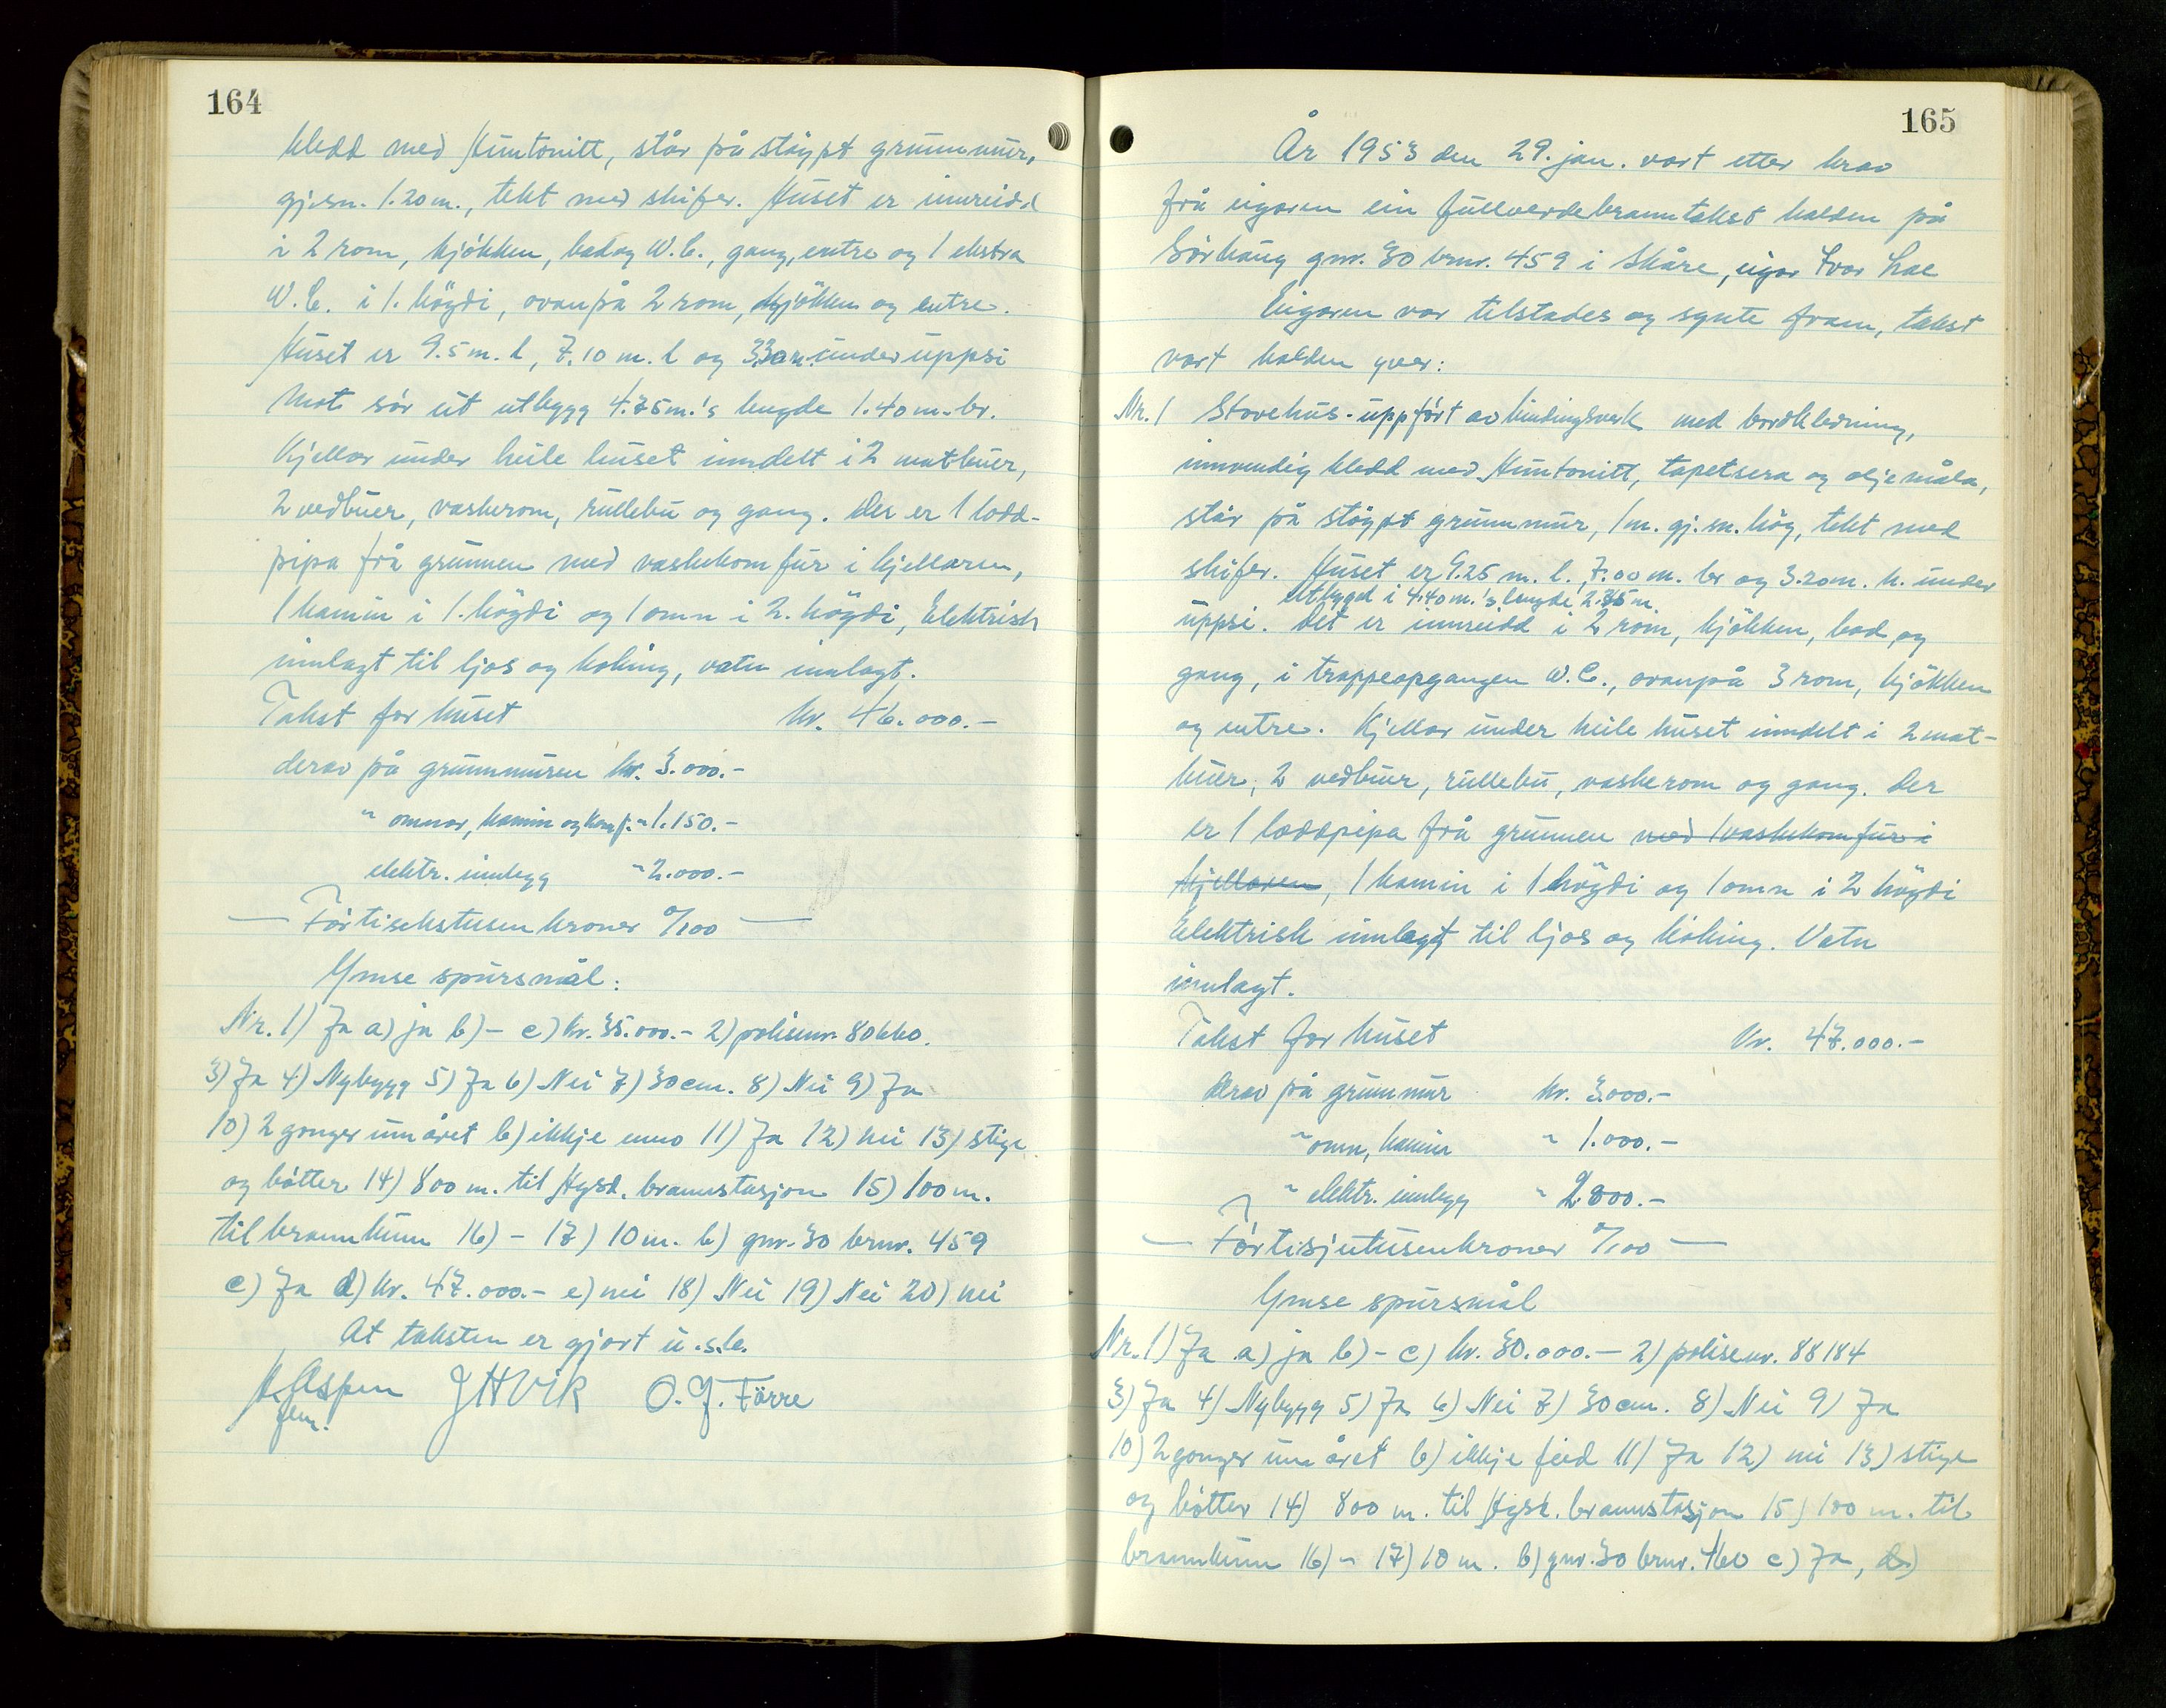 164
kledd med Huntonitt, står på støypt grunnmur,
gj.sn. 1.20 m., tekt med skifer. Huset er innreidd
i 2 rom, kjökken, bad og W.C., gang, entre og 1 ekstra
W.C. i 1. högdi, ovanpå 2 rom, kjökken og entre.
Huset er 9.5 m. l, 7.10 m. b og 3.30 m. under uppsi
Mot sör üt utbygg 4.75 m.'s lengde 1.40 m. br.
Kjellar under heile huset inndelt i 2 matbuer,
2 vedbuer, vaskerom, rullebu og gang. Der er 1 lodd-
pipa frå grunnen med vaskekomfur i kjellaren,
1 kamin i 1. högdi og 1 omn i 2. högdi, Elektrisk
innlagt til ljos og koking, vatn innlagt.
Takst for huset kr. 46.000.-
derav på grunnmuren kr. 3.000.-
" omnar, kamin og komf. " 1.150.-
elektr. innlegg " 2.000.-
— Förtisekstusen kroner 0/100 —
Ymse spursmål:
Nr. 1) Ja a) ja b) - c) kr. 35.000.- 2) polisenr. 80660.
3) Ja 4) Nybygg 5) Ja 6) Nei 7) 30 cm. 8) Nei 9) Ja
10) 2 gonger um året b) ikkje enno 11) Ja 12) nei 13) stige
og bötter 14) 800 m. til Hgsd. brannstasjon 15) 100 m.
til brannkum 16) - 17) 10 m. b) gnr. 30 brnr. 459
c) Ja d) kr. 47.000.- e) nei 18) Nei 19) Nei 20) nei
At taksten er gjort u.s.b.
Aspen JHVik O. J. Förre
165
År 1953 den 29. jan. vart etter krav
frå eigaren ein fullverdebranntakst halden på
Sörhaug gnr. 30 brnr. 459 i Skåre, eigar Ivar Lae
Eigaren var tilstades og synte fram, takst
vart halden yver:
Nr. 1 Stovehus - uppfört av bindingsverk med bordkledning,
innvendig kledd med Huntonitt, tapetsera og oljemåla,
står på støypt grunnmur, 1 m. gj. sn. hög, tekt med
skifer. Huset er 9.25 m. l., 7.00 m. br og 3.20 m. h. under
utbygd i 4.40 m.'s lengde 2.35 m.
uppsi. Det er innreidd i 2 rom, kjökken, bad, og
gang, i trappeopgangen W.C., ovanpå 3 rom, kjökken
og entre. Kjellar under heile huset inndelt i 2 mat-
buer, 2 vedbuer, rullebu, vaskerom og gang. Der
er 1 loddpipa frå grunnen med 1 vaskekomfur i
kjellaren, 1 kamin i 1 högdi og 1 omn i 2 högdi
Elektrisk innlagt til ljos og koking. Vatn
innlagt.
Takst for huset Kr. 47.000.-
derav på grunnmur kr. 3.000.-
" omn, kamin " 1.000.-
" elektr. innlegg " 2.800.-
— Förtisjutusenkroner 0/100 —
Ymse spursmål
Nr. 1) Ja a) ja b) - c) kr. 30.000.- 2) polisenr. 88184
3) Ja 4) Nybygg 5) Ja 6) Nei 7) 30 cm. 8) Nei 9) Ja
10) 2 gonger um året b) ikkje feid 11) Ja 12) nei 13) stige
og bötter 14) 800 m. til Hgsd. brannstasjon 15) 100 m. til
brannkum 16) - 17) 10 m. b) gnr. 30 brnr. 460 c) Ja, d)